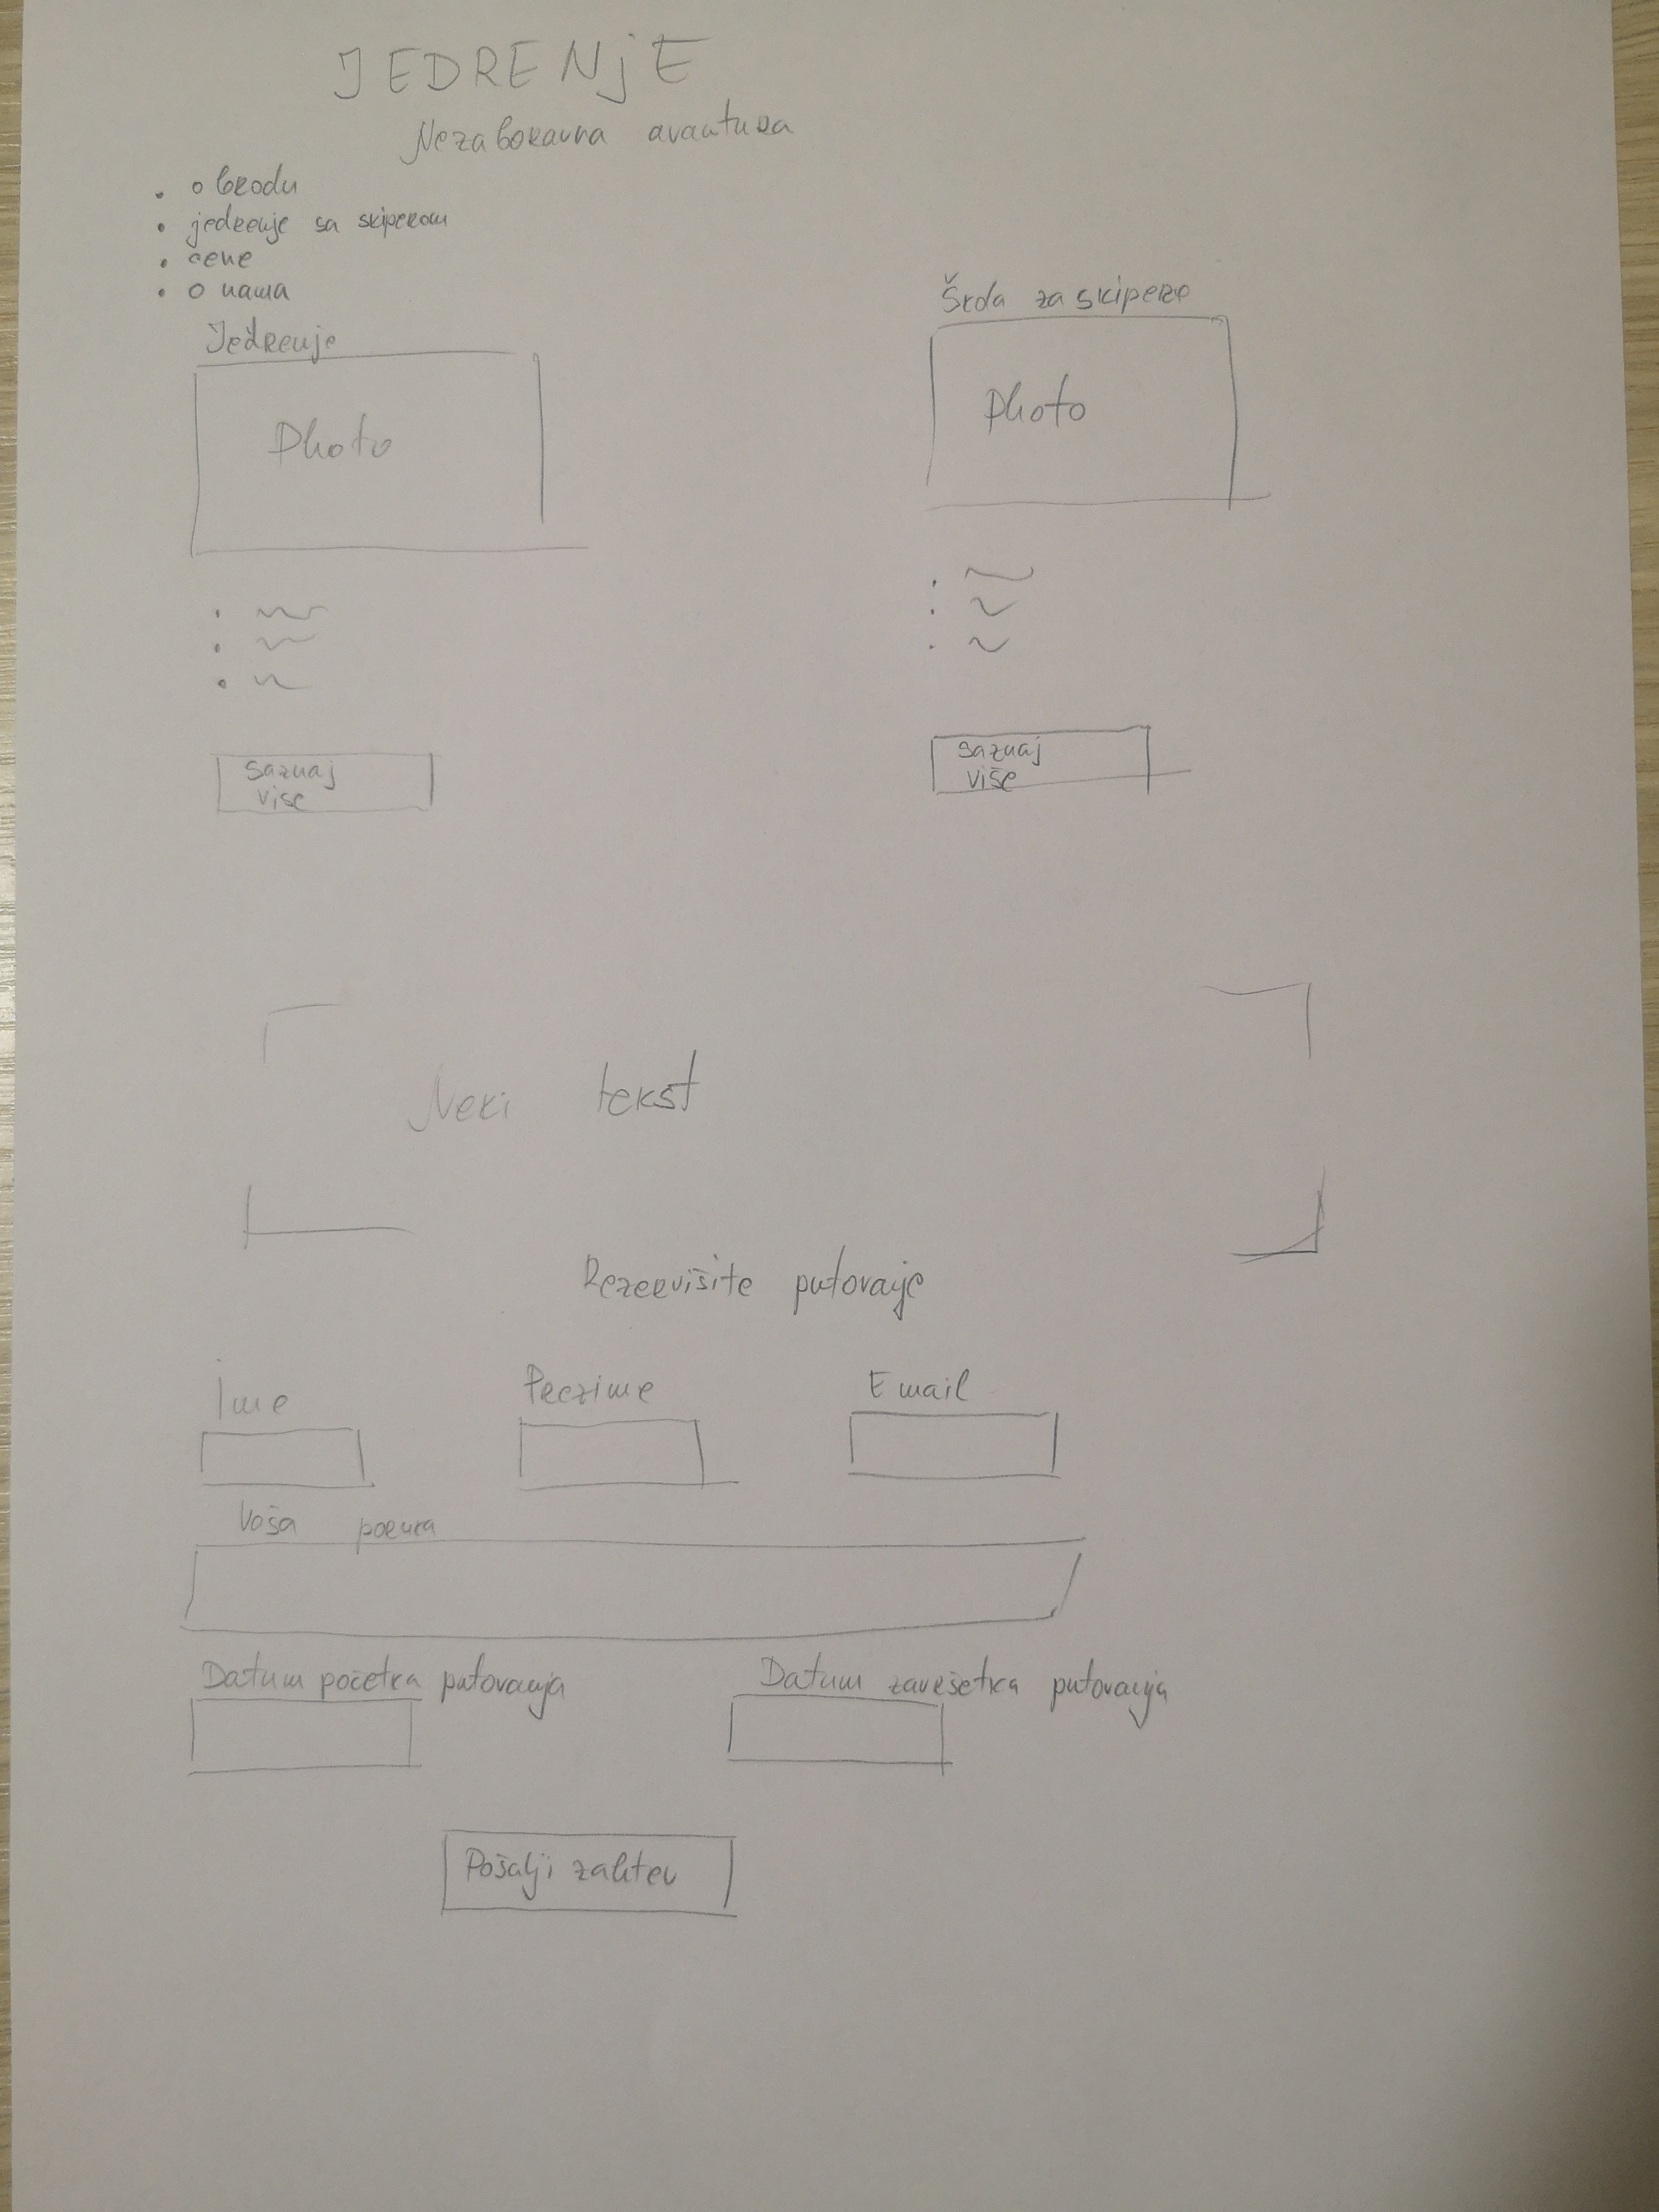 JEDRENjE
Nezaboravna avantura
• o brodu
• jedrenje sa skiperom
• cene
• o nama
Jedrenje
Photo
Saznaj
više
Škola za skipere
Photo
Saznaj
više
Neki tekst
Rezervišite putovanje
Ime
Prezime
Email
Vaša poruka
Datum početka putovanja
Datum završetka putovanja
Pošalji zahtev